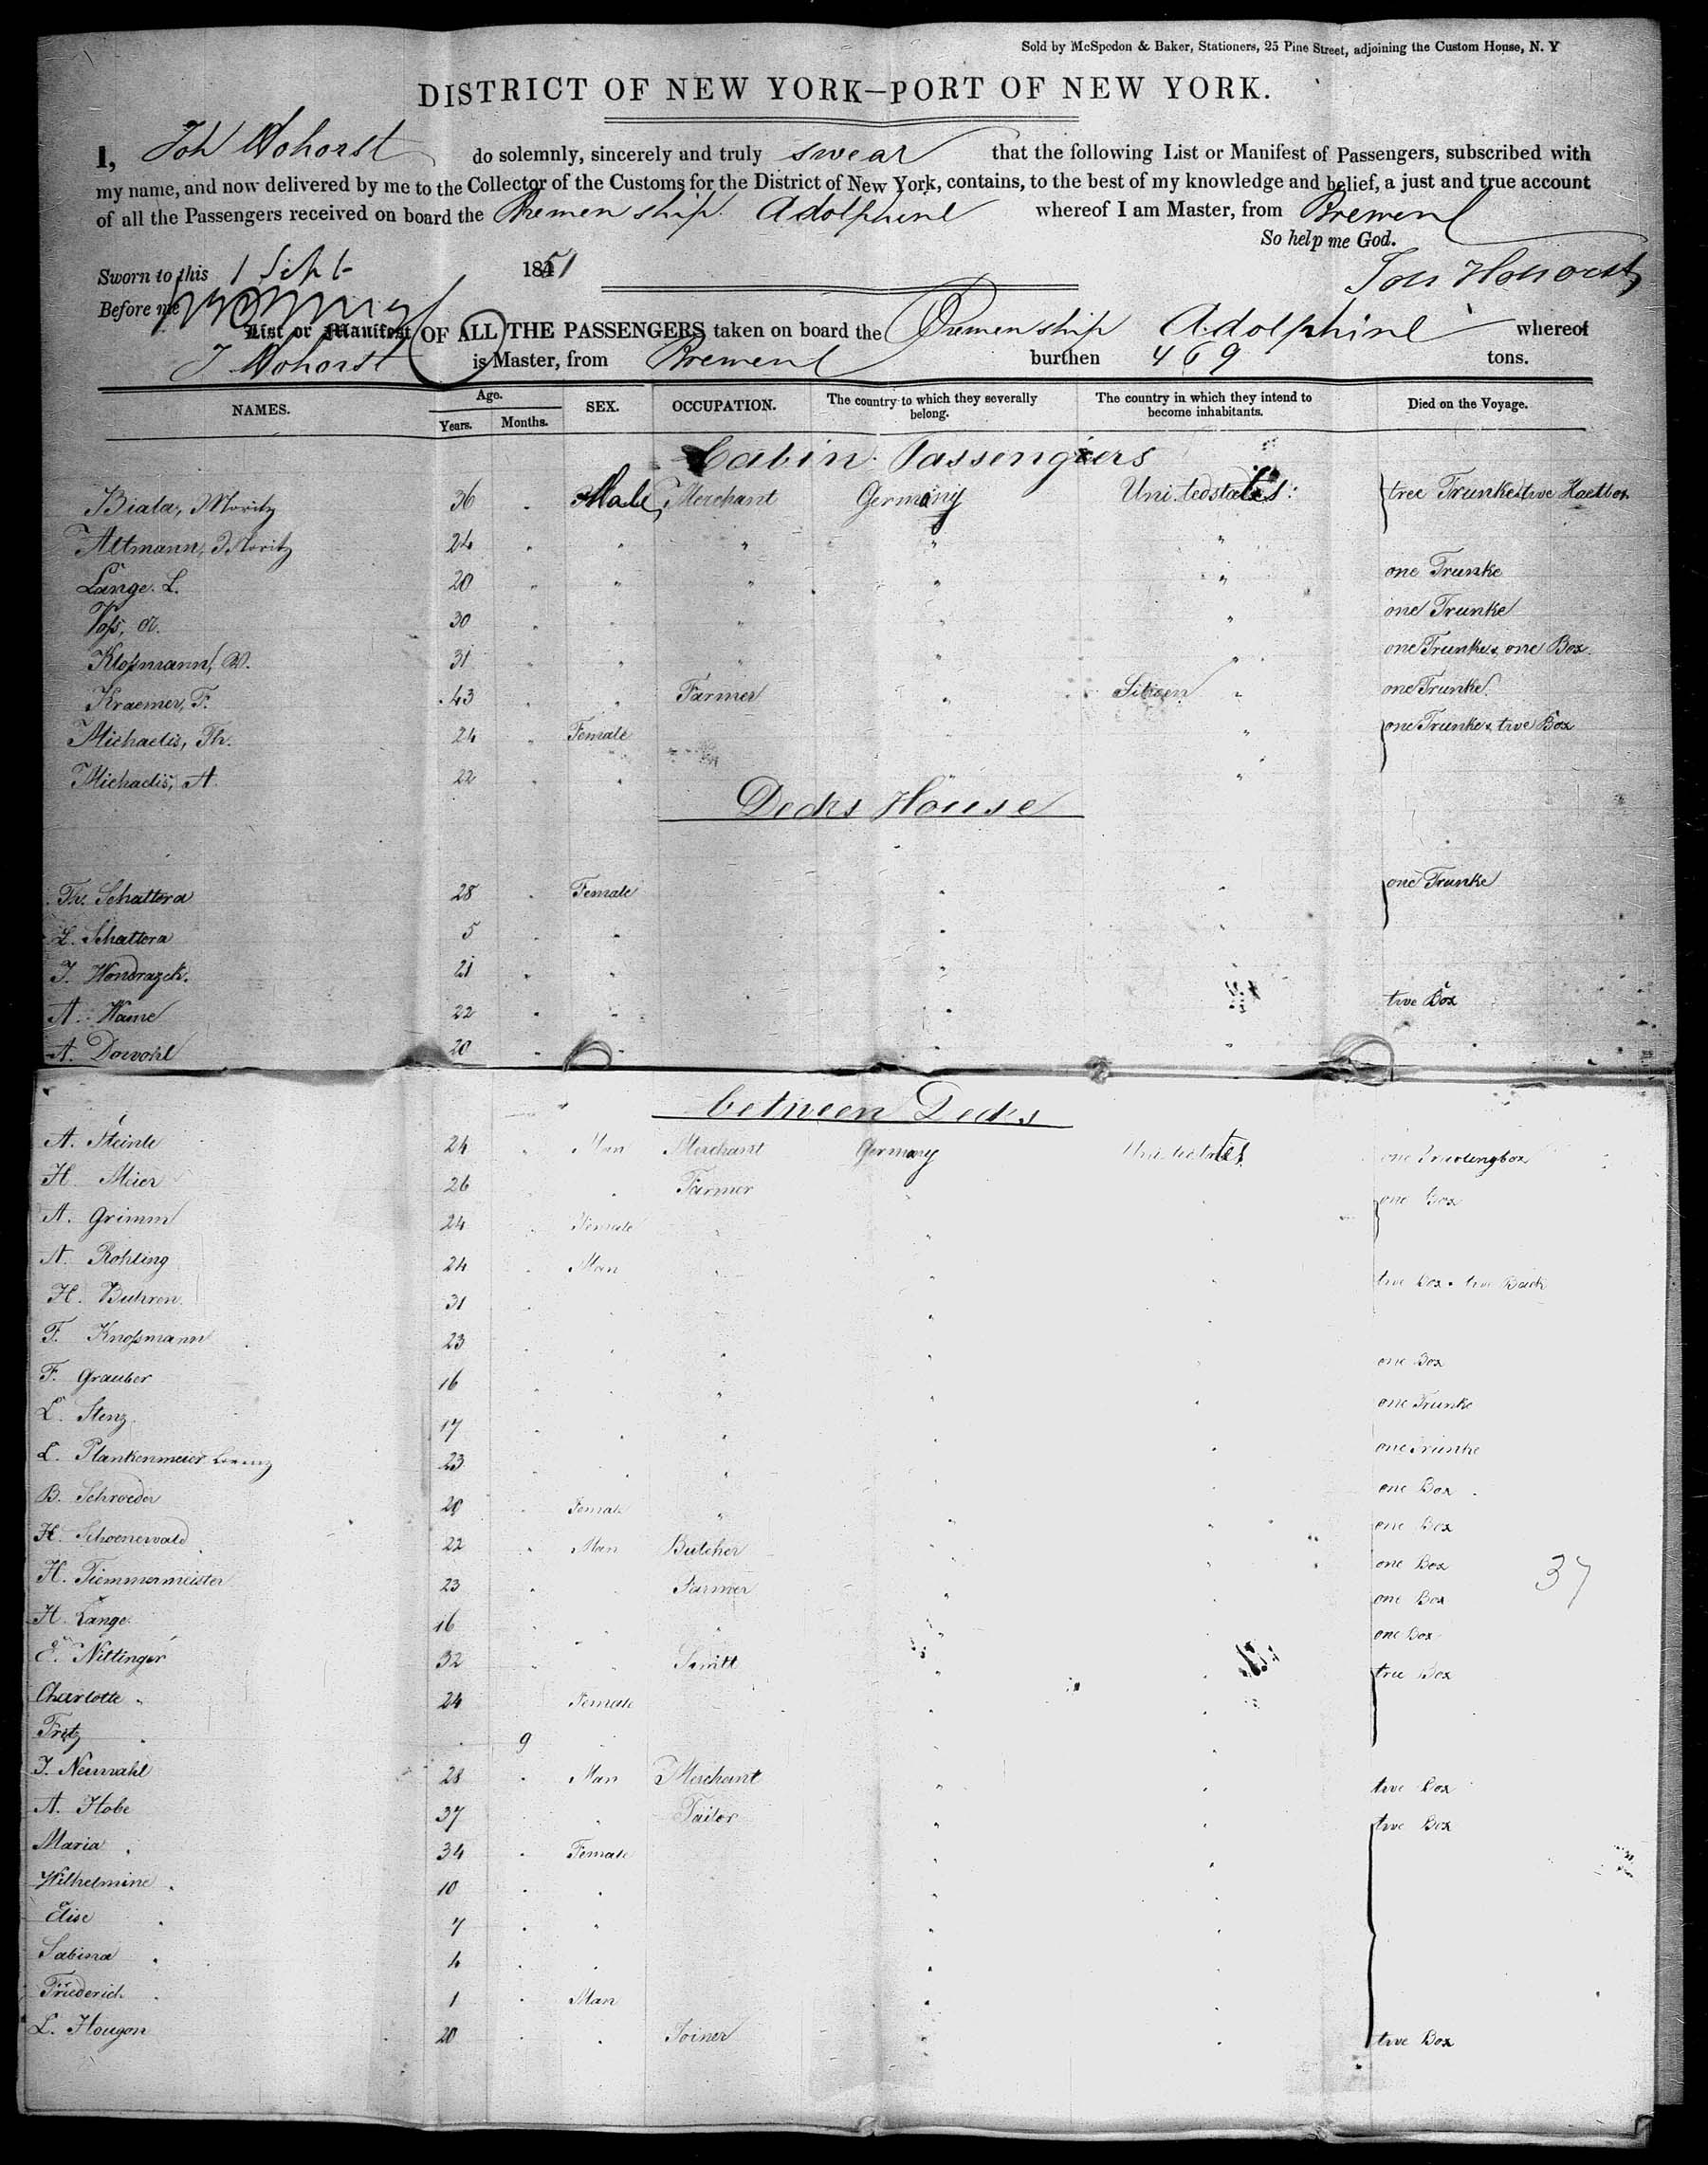 Sold by McSpedon & Baker, Stationers, 25 Pine Street, adjoining the Custom House, N. Y
DISTRICT OF NEW YORK—PORT OF NEW YORK.
I, Joh Hohorst do solemnly, sincerely and truly swear that the following List or Manifest of Passengers, subscribed with
my name, and now delivered by me to the Collector of the Customs for the District of New York, contains, to the best of my knowledge and belief, a just and true account
of all the Passengers received on board the Bremen ship Adolphine whereof I am Master, from Bremen
So help me God.
Sworn to this 1 Sept 1851
Joh Hohorst
Before me
List or Manifest OF ALL THE PASSENGERS taken on board the Bremen ship Adolphine whereof
J Hohorst is Master, from Bremen burthen 469 tons.
NAMES. Age. Years. Months. SEX. OCCUPATION. The country to which they severally belong. The country in which they intend to become inhabitants. Died on the Voyage.
Cabin Passengers
Biala, Moritz 36 Male Merchant Germany United states tree Trunke & twe Haetbox
Altmann, Moritz 24 " " " "
Lange. L. 20 " " " " one Trunke
Voß, A. 30 " " " " one Trunke
Kloßmann, W. 31 " " " " one Trunke & one Box.
Kraemer, F. 43 " Farmer " Sitizen " one Trunke
Michaelis, Th. 24 Female " " one Trunke & twe Box
Michaelis, A. 22 " "
Decks House
Th. Schattera 28 Female " " one Trunke
L. Schattera 5 " " "
J. Wondrazek. 21 " "
A. Hame 22 " " twe Box
A. Dowohl 20 " " "
between Decks
A. Steinle 24 Man Merchant Germany United states one
H. Meier 26 " Farmer " one Box
A. Grimm 24 Female " " "
A. Rohling 24 Man " " " twe Box & twe Back
H. Buhren 31 " " "
F. Knoßmann 23 " " " " one Box
F. Grauber 16 " " " one Trunke
L. Stenz 17 " " " one Trunke
L. Plankenmeier 23 " " " one Box
B. Schroeder 20 Female " " " one Box
H. Schoenewald 22 Man Butcher " " one Box
H. Timmermeister 23 " Farmer " " one Box
37
H. Lange 16 " " " one Box
E. Nittinger 32 " Smitt " " tree Box
Charlotte " 24 Female " "
Fritz " 9 " " "
J. Neuwahl 28 Man Merchant " " twe Box
A. Hobe 37 " Tailor " " twe Box
Maria " 34 Female " "
Wilhelmine " 10 " " "
Elise " 7 " " "
Sabina " 4 " " "
Friederich " 1 Man " "
L. Hougon 20 " Joiner " " twe Box